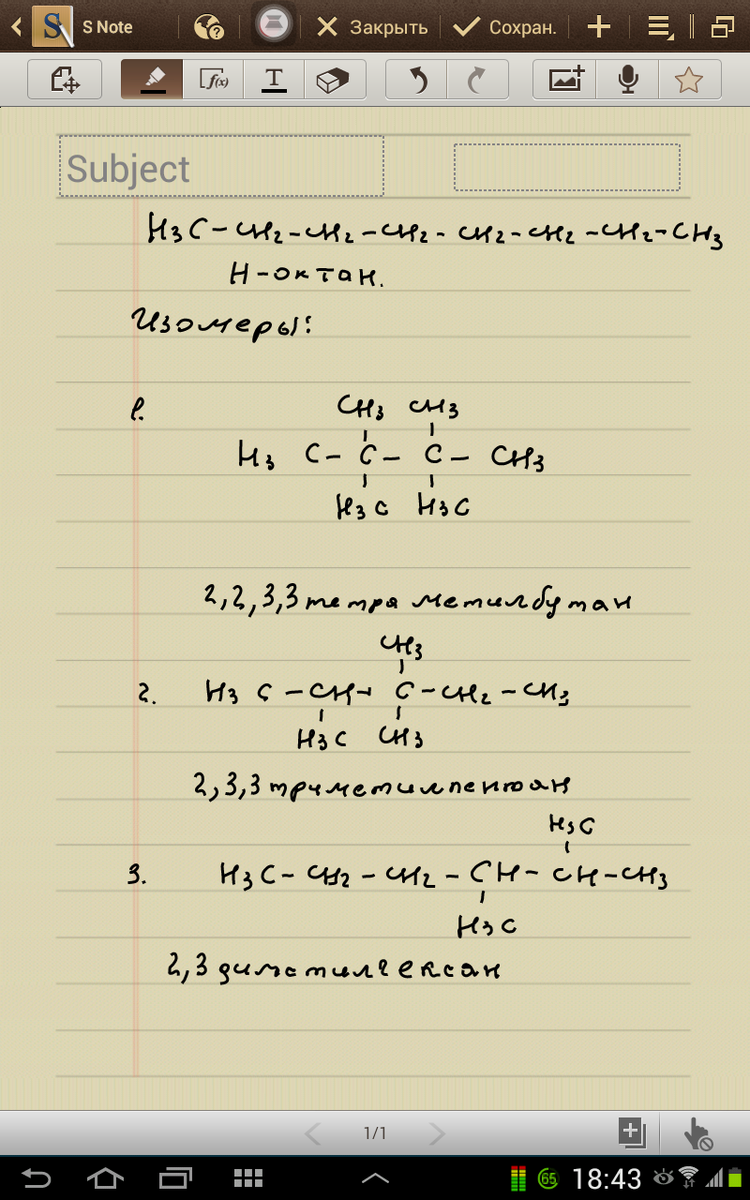 S Note
Закрыть
Сохран.
f(x)
T
Subject
H3C-CH2-CH2-CH2-CH2-CH2-CH2-CH3
Н-октан.
Изомеры:
1.
CH3 CH3
H3 C-C-C-CH3
H3C H3C
2,2,3,3 тетра метилбутан
CH3
2. H3 C-CH-C-CH2-CH3
H3C CH3
2,3,3 триметилпентан
H3C
3. H3C-CH2-CH2-CH-CH-CH3
H3C
2,3 диметилгексан
1/1
65
18:43